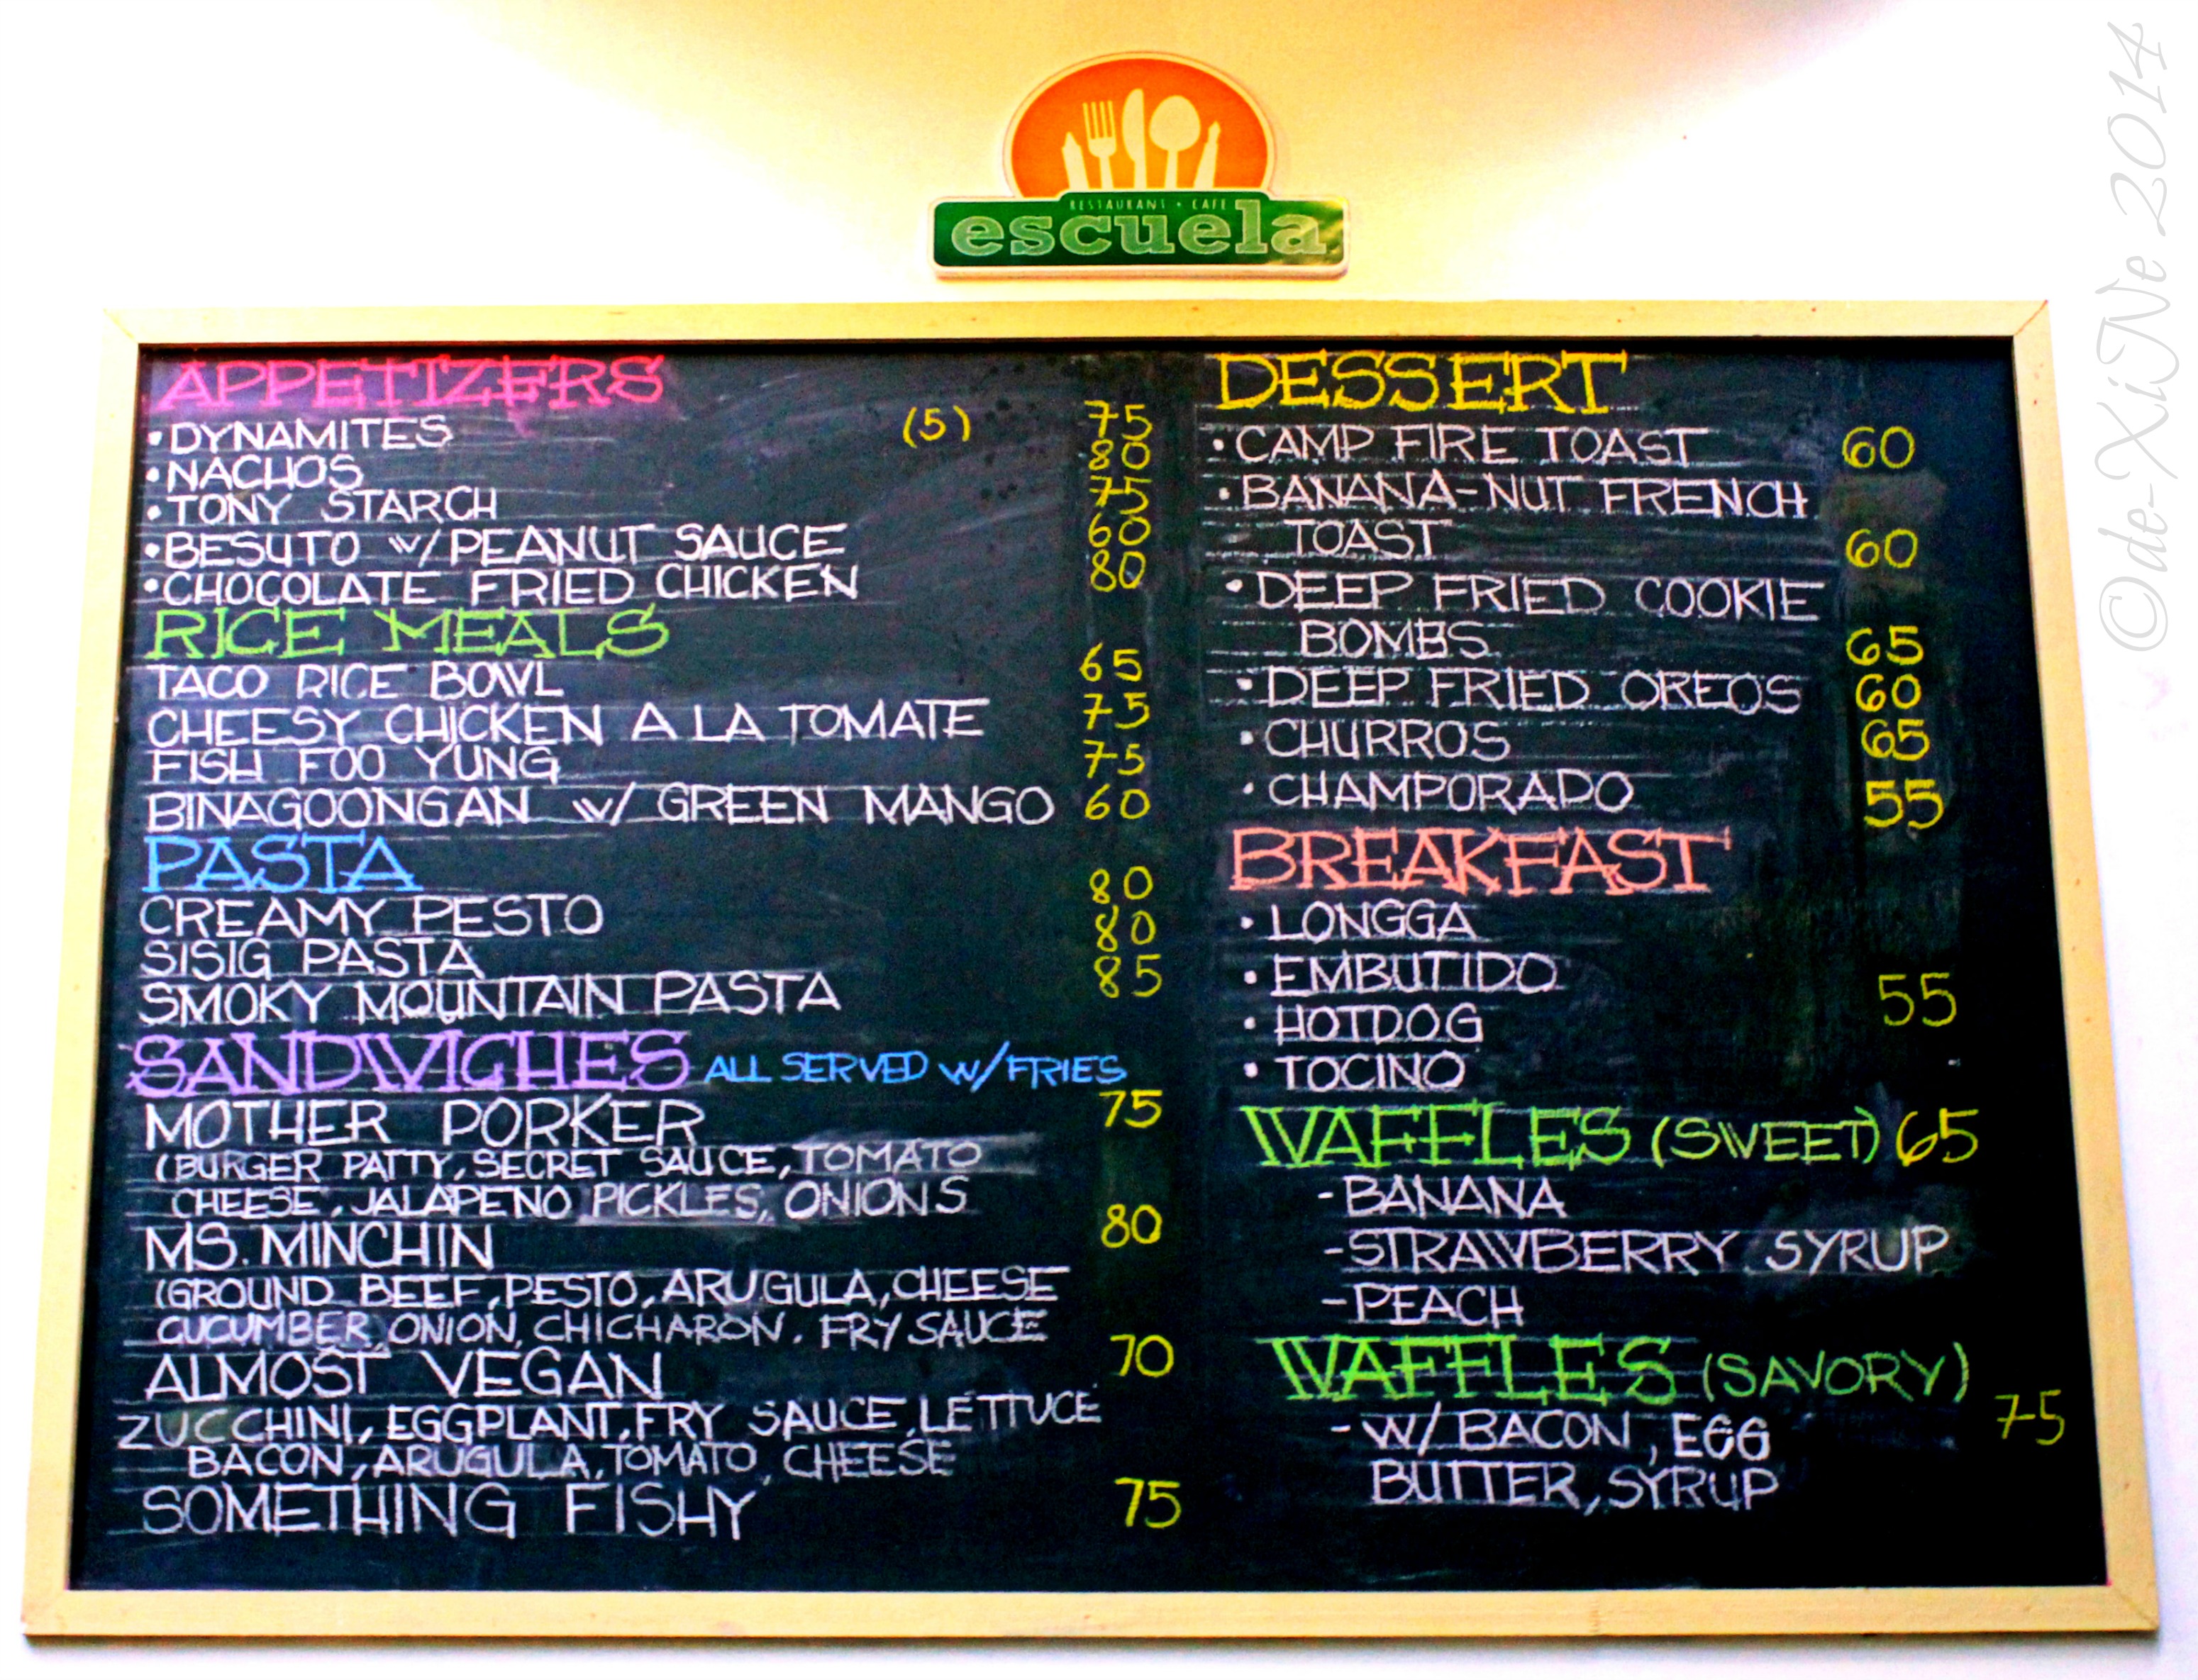 RESTAURANT • CAFE
escuela
APPETIZERS
• DYNAMITES (5) 75
• NACHOS 80
• TONY STARCH 75
• BESUTO w/ PEANUT SAUCE 60
• CHOCOLATE FRIED CHICKEN 80
RICE MEALS
TACO RICE BOWL 65
CHEESY CHICKEN A LA TOMATE 75
FISH FOO YUNG 75
BINAGOONGAN w/ GREEN MANGO 60
PASTA
CREAMY PESTO 80
SISIG PASTA 80
SMOKY MOUNTAIN PASTA 85
SANDWICHES ALL SERVED W/ FRIES
MOTHER PORKER 75
(BURGER PATTY, SECRET SAUCE, TOMATO
CHEESE, JALAPENO PICKLES, ONIONS
MS. MINCHIN 80
(GROUND BEEF, PESTO, ARUGULA, CHEESE
CUCUMBER, ONION, CHICHARON. FRY SAUCE
ALMOST VEGAN 70
ZUCCHINI, EGGPLANT, FRY SAUCE, LETTUCE
BACON, ARUGULA, TOMATO, CHEESE
SOMETHING FISHY 75
DESSERT
• CAMP FIRE TOAST 60
• BANANA-NUT FRENCH
TOAST 60
• DEEP FRIED COOKIE
BOMBS 65
• DEEP FRIED OREOS 60
• CHURROS 65
• CHAMPORADO 55
BREAKFAST
• LONGGA
• EMBUTIDO
• HOTDOG 55
• TOCINO
WAFFLES (SWEET) 65
- BANANA
- STRAWBERRY SYRUP
- PEACH
WAFFLES (SAVORY)
- W/ BACON, EGG 75
BUTTER, SYRUP
©de-XiNe 2014